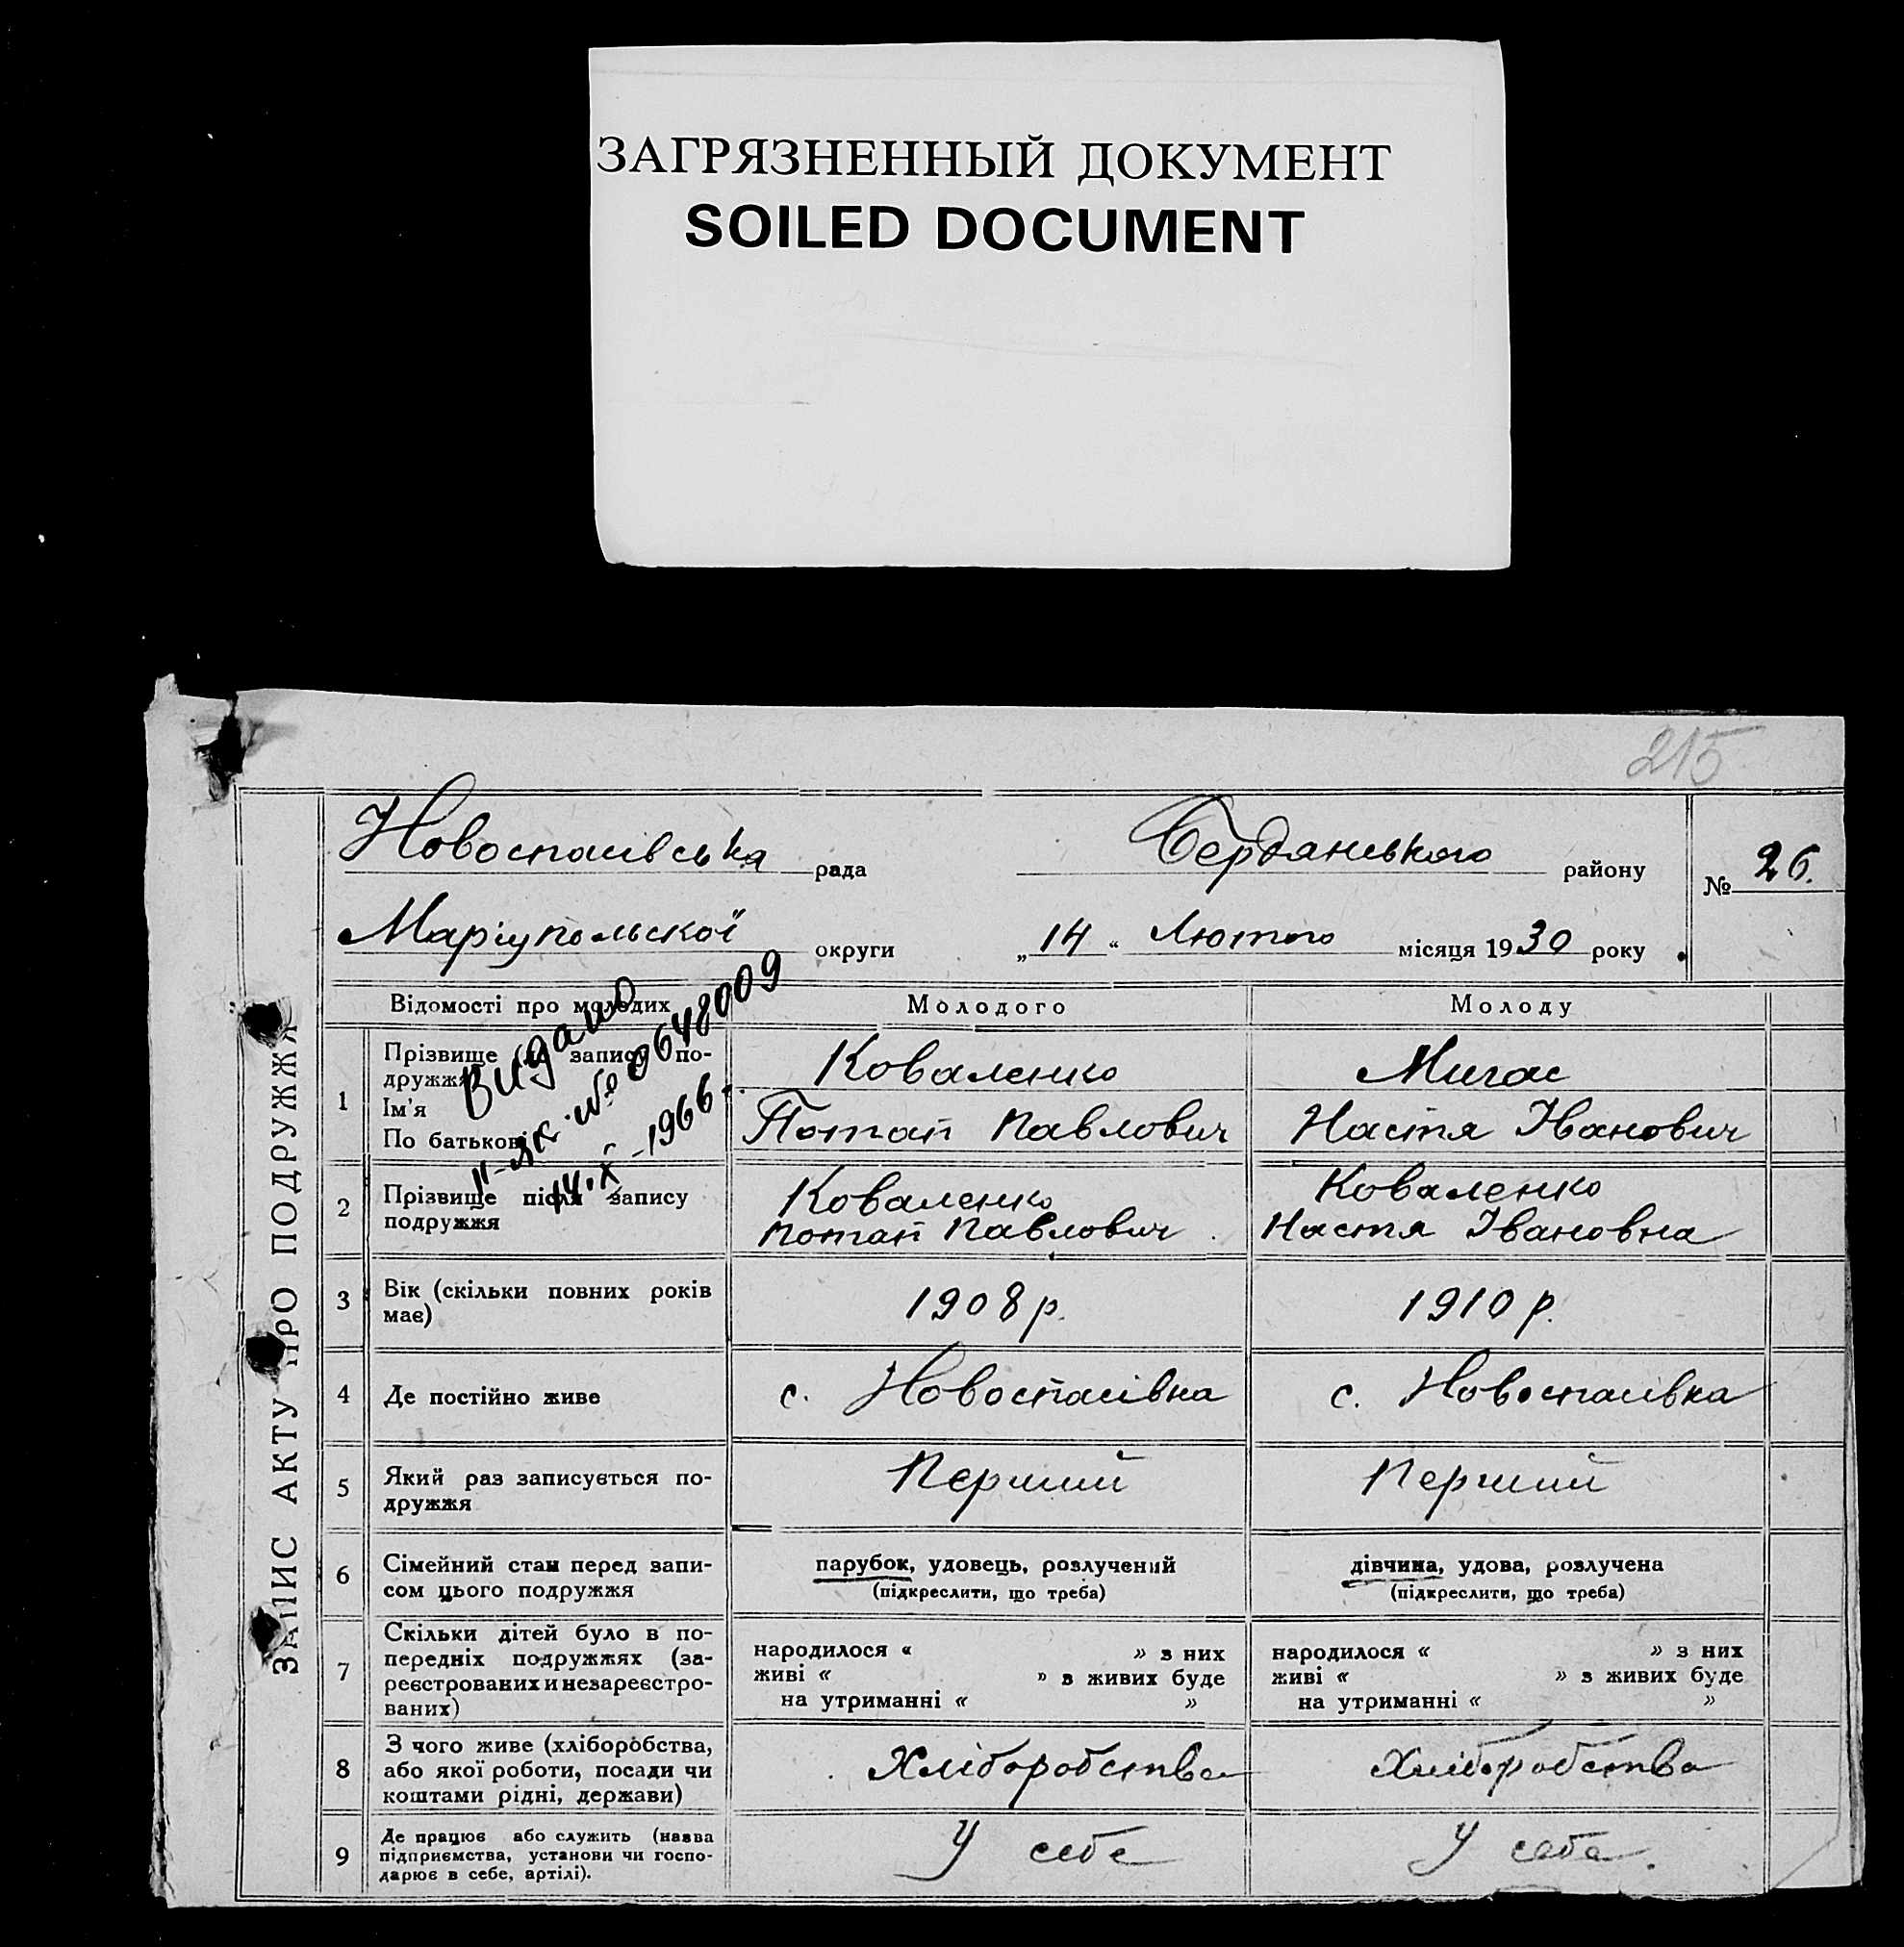 ЗАГРЯЗНЕННЫЙ ДОКУМЕНТ
SOILED DOCUMENT
215
ЗАПИС АКТУ ПРО ПОДРУЖЖЯ
Новоспасівська рада Бердянського району № 26.
Маріупольскої округи „14“ Лютого місяця 1930 року
Відомості про молодих Молодого Молоду
Видано
№ 0648009
14.X-1966
1 Прізвище до запису по- Коваленко Мигас
дружжя
Ім'я
По батькові Потап Павлович Настя Іванович
2 Прізвище після запису Коваленко Коваленко
подружжя Потап Павлович Настя Івановна
3 Вік (скільки повних років 1908 р. 1910 р.
має)
4 Де постійно живе с. Новоспасівка с. Новоспасівка
5 Який раз записується по- Перший Перший
дружжя
6 Сімейний стан перед запи- парубок, удовець, розлучений дівчина, удова, розлучена
сом цього подружжя (підкреслити, що треба) (підкреслити, що треба)
7 Скільки дітей було в по- народилося « » з них народилося « » з них
передніх подружжях (за- живі « » з живих буде живі « » з живих буде
реєстрованих и незареєстро- на утриманні « » на утриманні « »
ваних)
8 З чого живе (хліборобства, Хліборобства Хліборобства
або якої роботи, посади чи
коштами рідні, держави)
9 Де працює або служить (назва У себе У себе.
підприємства, установи чи госпо-
дарює в себе, артілі).